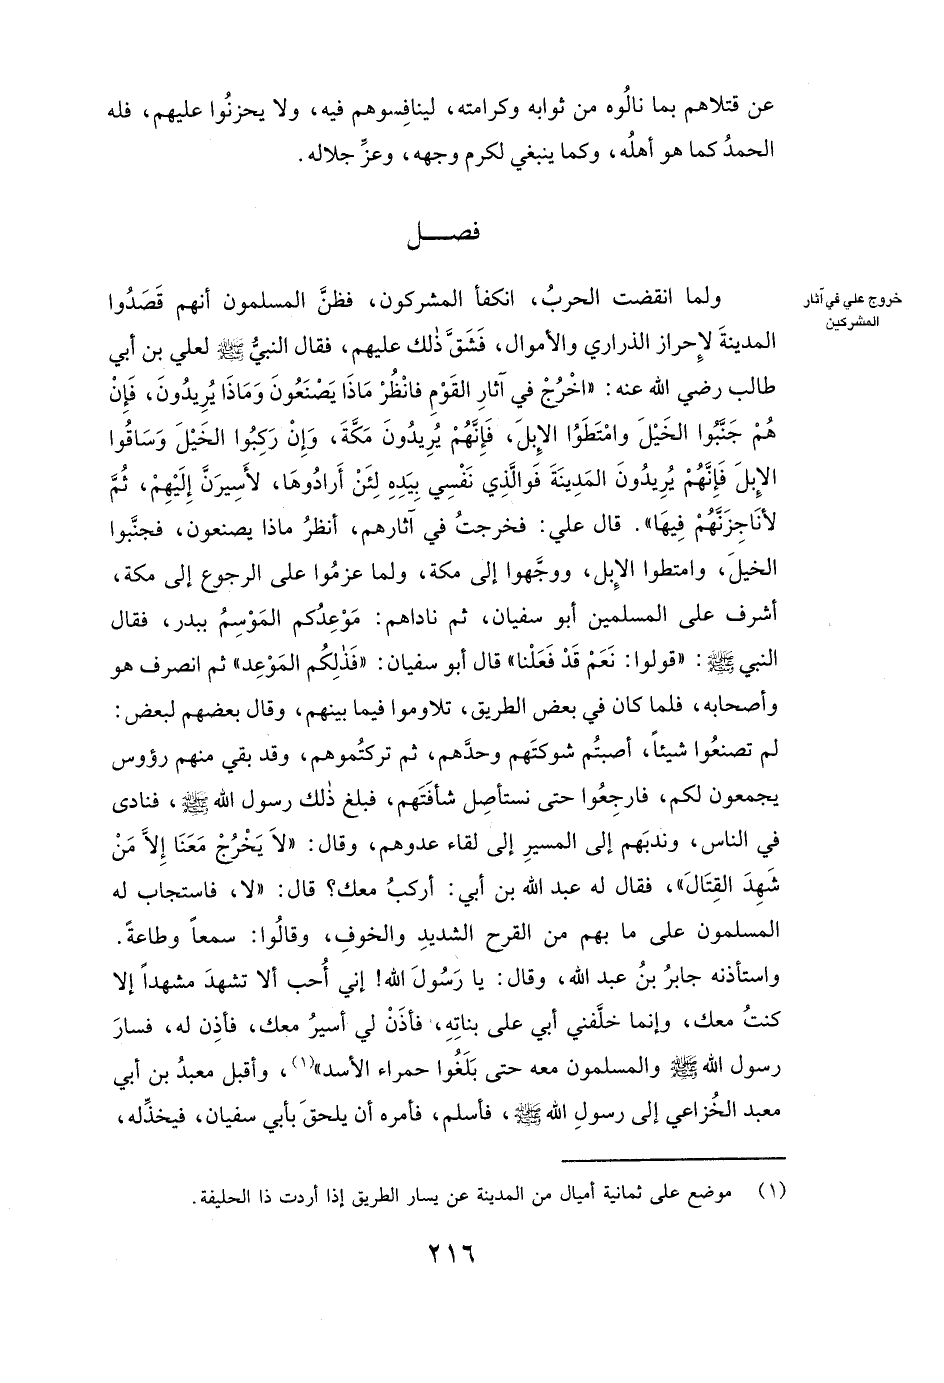 عن قتلاهم بما نالُوه من ثوابه وكرامته، لينافِسوهم فيه، ولا يحزنُوا عليهم، فله
الحمدُ كما هو أهلُه، وكما ينبغي لكرم وجهه، وعزِّ جلاله.
فصـــل
خروج علي في آثار
المشركين
ولما انقضت الحربُ، انكفأ المشركون، فظنَّ المسلمون أنهم قَصَدُوا
المدينةَ لإِحراز الذراري والأموال، فَشَقَّ ذٰلك عليهم، فقال النبيُّ ﷺ لعلي بن أبي
طالب رضي الله عنه: «اخْرُجْ في آثارِ القَوْمِ فانْظُرْ مَاذَا يَصْنَعُونَ وَمَاذَا يُرِيدُونَ، فَإِنْ
هُمْ جَنَّبُوا الخَيْلَ وامْتَطَوُا الإِبلَ، فَإِنَّهُمْ يُرِيدُونَ مَكَّةَ، وَإِنْ رَكِبُوا الخَيْلَ وَسَاقُوا
الإِبلَ فَإِنَّهُمْ يُرِيدُونَ المَدِينَةَ فَوالَّذِي نَفْسِي بِيَدِهِ لَئنْ أرادُوهَا، لأَسِيرَنَّ إِلَيْهِمْ، ثُمَّ
لأنَاجِزَنَّهُمْ فِيهَا». قال علي: فخرجتُ في آثارهم، أنظرُ ماذا يصنعون، فجنَّبوا
الخيلَ، وامتطوا الإبل، ووجَّهوا إلى مكة، ولما عزمُوا على الرجوع إلى مكة،
أشرف على المسلمين أبو سفيان، ثم ناداهم: مَوْعِدُكم المَوْسِمُ ببدر، فقال
النبي ﷺ: «قولوا: نَعَمْ قَدْ فَعَلْنا» قال أبو سفيان: «فَذٰلِكُم المَوْعِد» ثم انصرف هو
وأصحابه، فلما كان في بعض الطريق، تلاوموا فيما بينهم، وقال بعضهم لبعض:
لم تصنعُوا شيئاً، أصبتُم شوكتَهم وحدَّهم، ثم تركتُموهم، وقد بقي منهم رؤوس
يجمعون لكم، فارجِعُوا حتى نستأصِل شأفتَهم، فبلغ ذٰلك رسول الله ﷺ، فنادى
في الناس، وندبَهم إلى المسيرِ إلى لقاء عدوهم، وقال: «لاَ يَخْرُجْ مَعَنَا إلاَّ مَنْ
شَهِدَ القِتَالَ»، فقال له عبد الله بن أبي: أركبُ معك؟ قال: «لا، فاستجاب له
المسلمون على ما بهم من القرح الشديدِ والخوفِ، وقالُوا: سمعاً وطاعةً.
واستأذنه جابرُ بنُ عبد الله، وقال: يا رَسُولَ الله! إني أُحب ألا تشهدَ مشهداً إلا
كنتُ معك، وإنما خلَّفني أبي على بناتِهِ، فأذَنْ لي أسيرُ معك، فأذِن له، فسارَ
رسول الله ﷺ والمسلمون معه حتى بَلَغُوا حمراء الأسد»(١)، وأقبل معبدُ بن أبي
معبد الخُزاعي إلى رسولِ الله ﷺ، فأسلم، فأمره أن يلحقَ بأبي سفيان، فيخذِّله،
(١) موضع على ثمانية أميال من المدينة عن يسار الطريق إذا أردت ذا الحليفة.
٢١٦